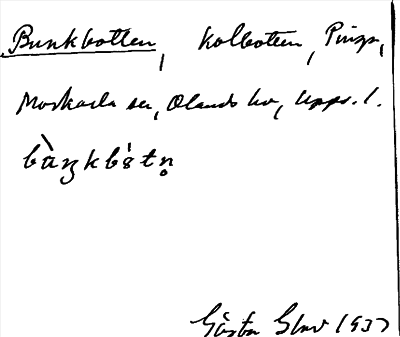 Bunkbotten, kolbotten, Pings,
Morkarla sn, Olands hd, Upps. l.
bùŋkbåtn̥
Gösta Elov 1937